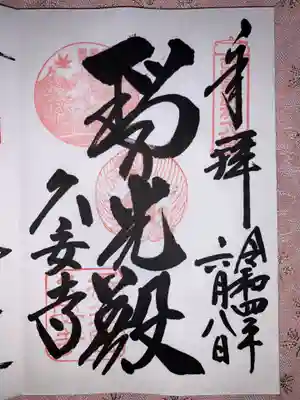 奉拝
令和四年
六月八日
瑠光殿
久安寺